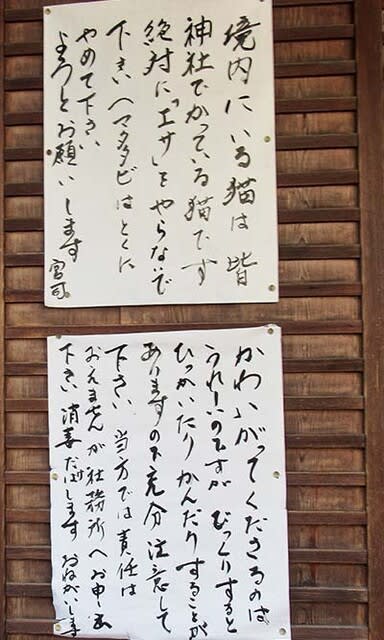 境内にいる猫は皆
神社でかっている猫です
絶対に「エサ」をやらないで
下さい(マタタビはとくに
やめて下さい
よろしくお願いします
宮司
かわいがってくださるのは、
うれしいのですが びっくりすると
ひっかいたりかんだりすることが
ありますので充分注意して
下さい 当方では責任は
おえませんが社務所へお申し出
下さい 消毒だけはします おねがいします